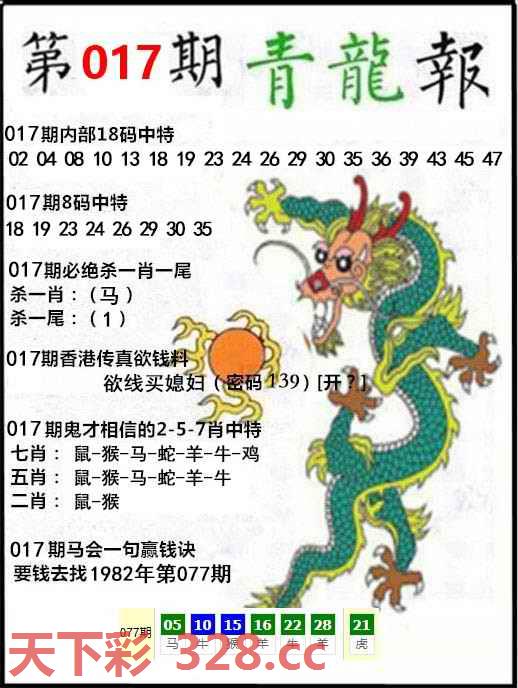 第017期青龍報
017期内部18码中特
02 04 08 10 13 18 19 23 24 26 29 30 35 36 39 43 45 47
017期8码中特
18 19 23 24 26 29 30 35
017期必绝杀一肖一尾
杀一肖：（马）
杀一尾：（1）
017期香港传真欲钱料
欲线买媳妇（密码139）[开？]
017期鬼才相信的2-5-7肖中特
七肖：鼠-猴-马-蛇-羊-牛-鸡
五肖：鼠-猴-马-蛇-羊-牛
二肖：鼠-猴
017期马会一句赢钱诀
要钱去找1982年第077期
077期 05 10 15 16 22 28 21
马 牛 猴 羊 牛 羊 虎
天下彩 328.cc